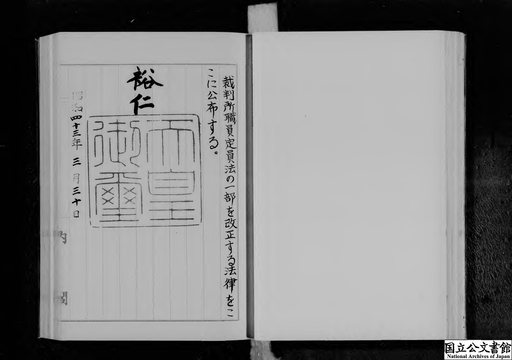 裁判所職員定員法の一部を改正する法律をこ
こに公布する。
裕仁
天皇
御璽
昭和四十三年三月三十日
内閣
国立公文書館
National Archives of Japan